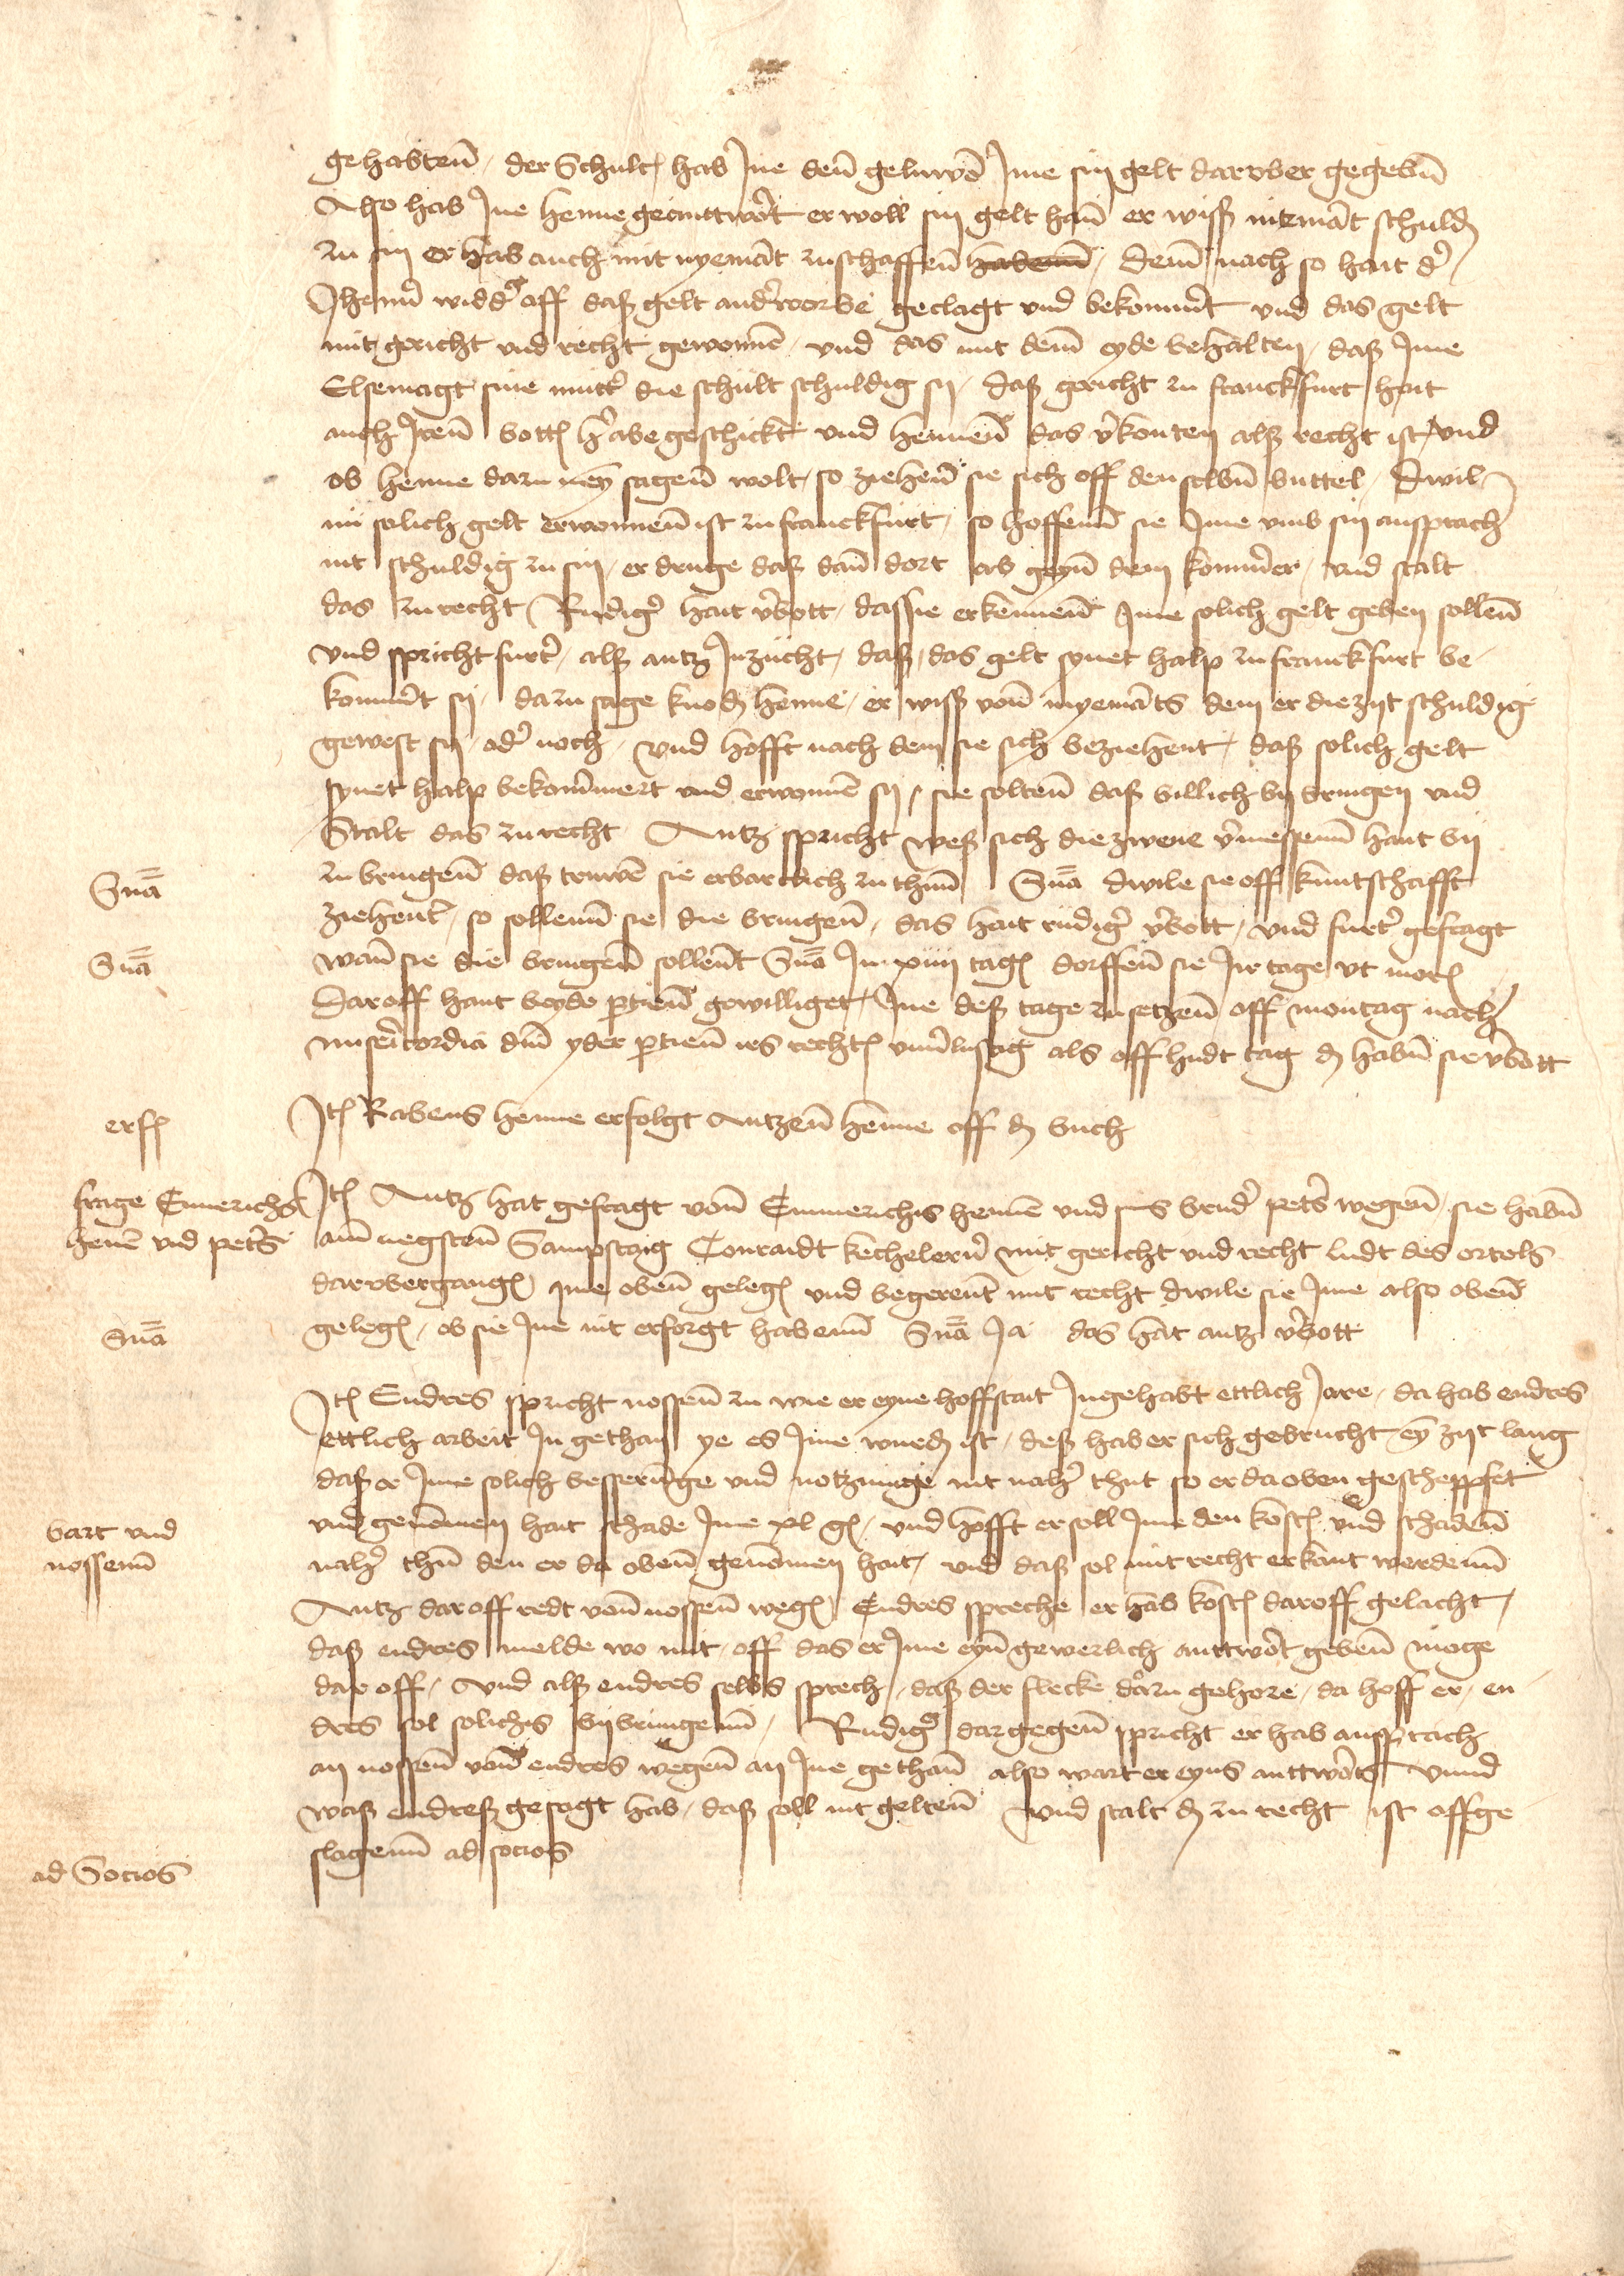 gehabten der Schult hab Ine den geluwen Ime sin gelt daruber gegeben
Also hab Ine Henne geanttwort er woll sin gelt han er wiss niemant schuld
zu sin er hab auch mit nyemant zuschaffen habenn Dem nach so hait der
Jhenn widder off daß gelt anderworbe geclagt und bekommert und das gelt
mit gericht und recht gewonnen und das mit dem eyde behalten daß Ime
Elsemagt sine mutter die schult schuldig sy daß gericht zu franckfurt hait
auch Iren botten herabe geschickt und hennen das verkonten alß recht ist und
ob henne darzu neyn sagen wolt so ziehen sie sich off denselben buttel Dwil
nu solich gelt erwonnen ist zu franckfurt so hoffenn sie Ime umb sin ansprach
nit schuldig zu sin er druge daß dann dort ab geyn dem kommerer und stalt
das zurecht Rudiger hait verbott das sie erkennen Ime solich gelt geben sollen
und spricht furter alß antz Inzucht daß das gelt synet halp zu franckfurt be
kommert sy darzu sage knod henne er wiss von nyemants dem er die zyt schuldig
gewest sy oder noch und hofft nach dem sie sich beziehent daß solich gelt
synet halp bekommert und erwonnen sy sie solten daß billich by bringen und
Stalt das zurecht Antz spricht weß sich die zwene vermessenn hant by
zu bringen daß truwen sie erbarclich zu thun Sna dwile sie off kuntschafft
ziehent so sollenn sie die bringen das hait rudiger verbott und furter gefragt
wann sie die bringen sollent Sna In xiiij tagen dorffen sie Ir tage ut moris
Daroff hant beyde partien gewilliget Ine deß tage zu setzen off montag nach
misericordia dni yder partien ires rechten unverlustig als off hudt tag das haben sie verbott
Item Rabens henne erfolgt Antzen henne off das buch
Item Antz hat gefragt von Emmerichs hennen und sins bruder peters wegen sie haben
am negsten Sampstag Conraidt kecheleren mit gericht und recht ludt des ortels
daruber gangen Ime oben gelegen und begerent mit recht dwile sie Ime also oben
gelegen ob sie Ine nit erforgt habenn Sna Ja das hat antz verbott
Item Endres spricht nossen zu wie er eyne hoffstait Ingehabt ettlich Jare da hab endres
ettlich arbeit In gethan ye es Ime wurden ist deß hab er sich gebrucht eyn zyt lang
daß er Ime solich besserunge und notzunge nit naher thut so er da oben gescheppfet
und genommen hait schade Ime xl gulden und hofft er soll Ime den kosten und schaden
naher thun den er da oben genommen hait und daß sol mit recht erkant werdenn
Antz daroff redt von nossen wegen Endres spreche er hab kosten daroff gelacht
daß endres melde wo mit off das er Ime eyn gewerlich anttwort geben moge
dar off und alß endres selbs sprech daß der flecke darzu gehore da hoff er en
dres sol solichs bybringenn Rudiger dargegen spricht er hab ansprach
an nossen von endres wegen an Ine gethan also wart er eyns anttworts Unnd
waß endreß gesagt hab daß soll nit gelten und stalt das zu recht ist offge
slagenn ad socios
Sna
Sna
erf
frage Emerichs
henen und peters
Sna
bart und
nossenn
ad Socios